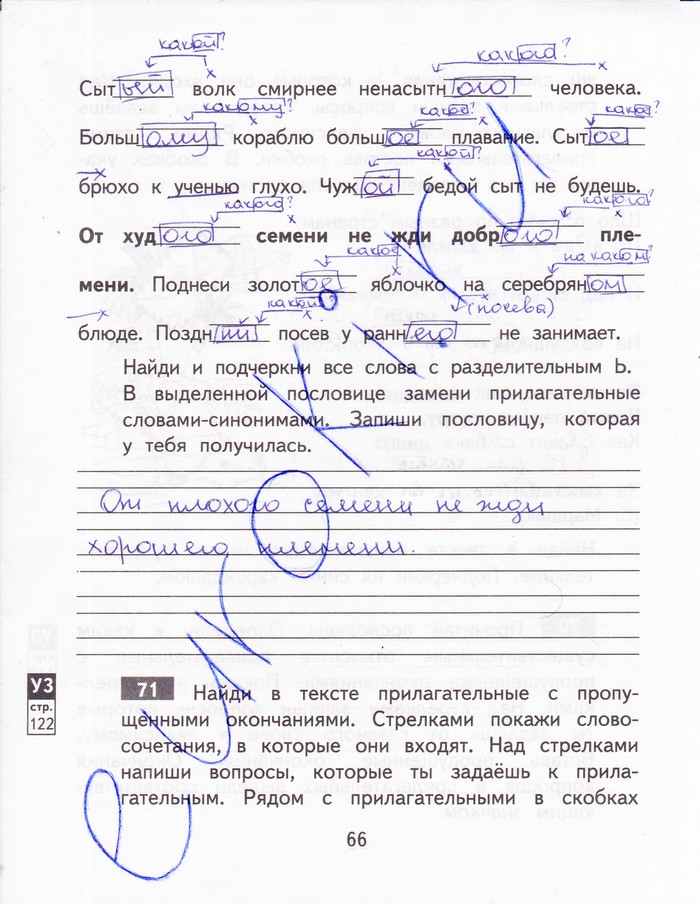 какой? какого?
Сытый волк смирнее ненасытного человека.
какому? какое? какое?
Большому кораблю большое плавание. Сытое
какой?
брюхо к ученью глухо. Чужой бедой сыт не будешь.
какого? какого?
От худого семени не жди доброго пле-
какое? на каком?
мени. Поднеси золотое яблочко на серебряном
какой? (посева)
блюде. Поздний посев у раннего не занимает.
Найди и подчеркни все слова с разделительным Ь.
В выделенной пословице замени прилагательные
словами-синонимами. Запиши пословицу, которая
у тебя получилась.
От плохого семени не жди
хорошего племени.
УЗ
стр.
122
71 Найди в тексте прилагательные с пропу-
щенными окончаниями. Стрелками покажи слово-
сочетания, в которые они входят. Над стрелками
напиши вопросы, которые ты задаёшь к прила-
гательным. Рядом с прилагательными в скобках
66